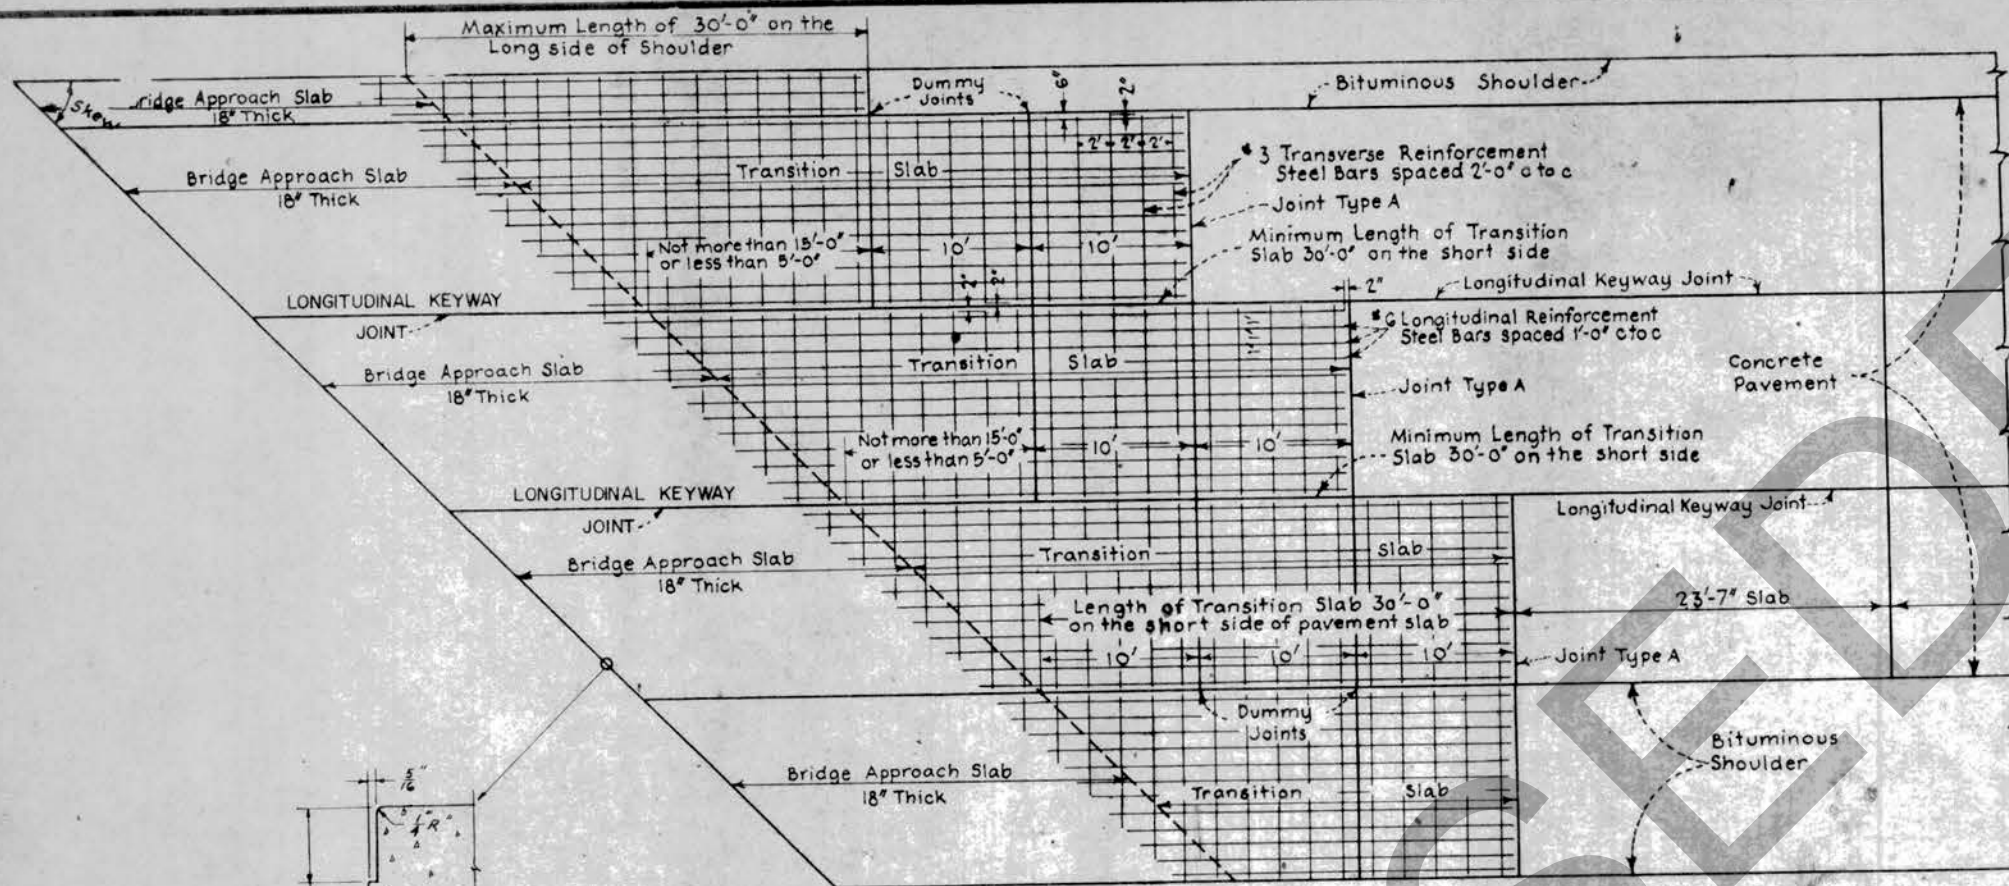 Maximum Length of 30'-0" on the
Long side of Shoulder
Skew
ridge Approach Slab
18" Thick
Dummy
Joints
6"
2"
Bituminous Shoulder
2' 2' 2'
Bridge Approach Slab
18" Thick
Transition Slab
#3 Transverse Reinforcement
Steel Bars spaced 2'-0" c to c
Joint Type A
Not more than 15'-0"
or less than 5'-0"
10'
10'
Minimum Length of Transition
Slab 30'-0" on the short side
2" 2"
2"
Longitudinal Keyway Joint
LONGITUDINAL KEYWAY
JOINT
#6 Longitudinal Reinforcement
Steel Bars spaced 1'-0" c to c
1' 1' 1'
Bridge Approach Slab
18" Thick
Transition Slab
Concrete
Pavement
Joint Type A
Not more than 15'-0"
or less than 5'-0"
10'
10'
Minimum Length of Transition
Slab 30'-0" on the short side
LONGITUDINAL KEYWAY
JOINT
Longitudinal Keyway Joint
Bridge Approach Slab
18" Thick
Transition Slab
Length of Transition Slab 30'-0"
on the short side of pavement slab
23'-7" Slab
10'
10'
10'
Joint Type A
Dummy
Joints
Bituminous
Shoulder
Bridge Approach Slab
18" Thick
Transition Slab
5/16"
1/4" R